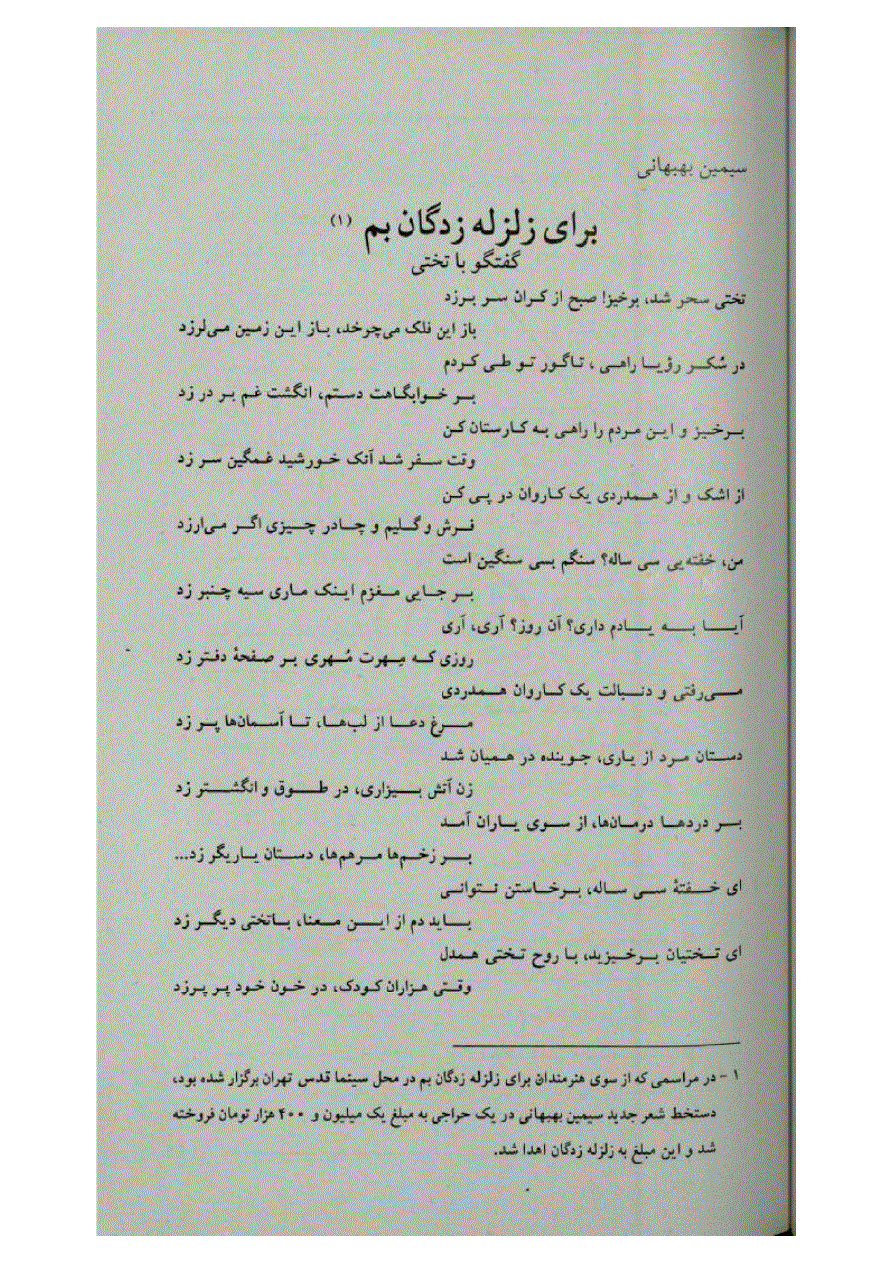 سیمین بهبهانی
برای زلزله زدگان بم (۱)
گفتگو با تختی
تختی سحر شد، برخیز! صبح از کران سر برزد
باز این فلک می‌چرخد، باز این زمین می‌لرزد
در سُکر رؤیا راهی، تا گور تو طی کردم
بر خوابگاهت دستم، انگشت غم بر در زد
برخیز و این مردم را راهی به کارستان کن
وقت سفر شد آنک خورشید غمگین سر زد
از اشک و از همدردی یک کاروان در پی کن
فرش و گلیم و چادر چیزی اگر می‌ارزد
من، خفته‌یی سی ساله؟ سنگم بسی سنگین است
بر جایی مغزم اینک ماری سیه چنبر زد
آیا به یادم داری؟ آن روز؟ آری، آری
روزی که مِهرت مُهری بر صفحهٔ دفتر زد
می‌رفتی و دنبالت یک کاروان همدردی
مرغ دعا از لب‌ها، تا آسمان‌ها پر زد
دستان مرد از یاری، جوینده در همیان شد
زن آتش بیزاری، در طوق و انگشتر زد
بر دردها درمان‌ها، از سوی یاران آمد
بر زخم‌ها مرهم‌ها، دستان یاریگر زد...
ای خفتهٔ سی ساله، برخاستن نتوانی
باید دم از این معنا، با تختی دیگر زد
ای تختیان برخیزید، با روح تختی همدل
وقتی هزاران کودک، در خون خود پر پرزد
۱ - در مراسمی که از سوی هنرمندان برای زلزله زدگان بم در محل سینما قدس تهران برگزار شده بود،
دستخط شعر جدید سیمین بهبهانی در یک حراجی به مبلغ یک میلیون و ۴۰۰ هزار تومان فروخته
شد و این مبلغ به زلزله زدگان اهدا شد.